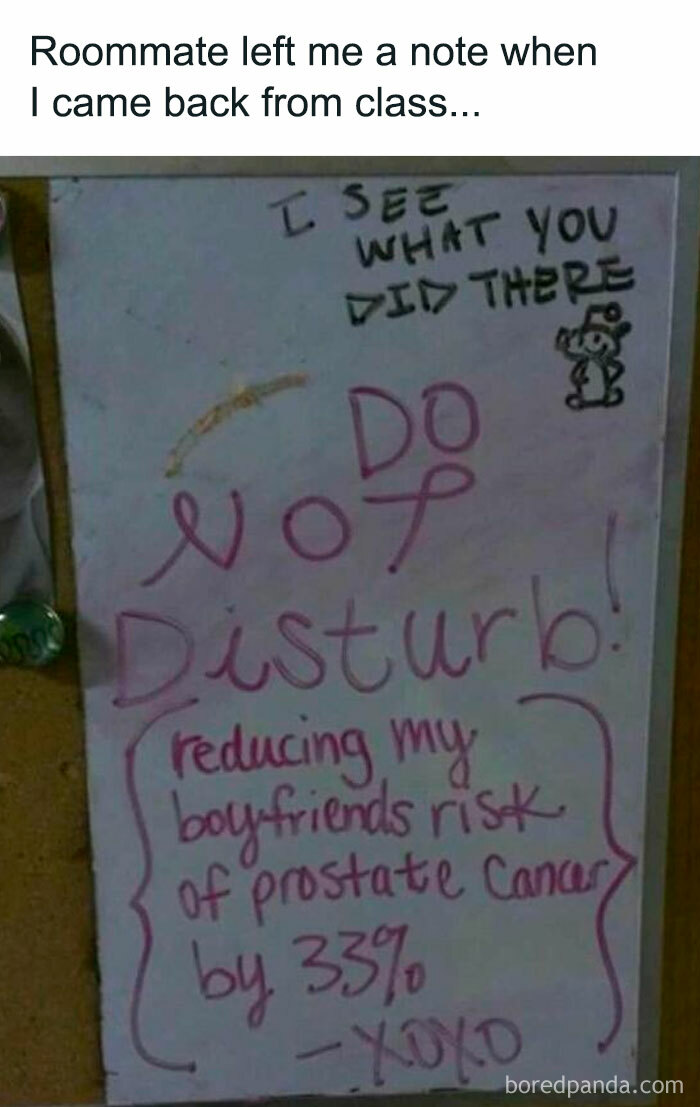 Roommate left me a note when
I came back from class...
I SEE
WHAT YOU
DID THERE
DO
NOT
Disturb!
reducing my
boyfriends risk
of prostate cancer
by 33%
- XOXO
boredpanda.com